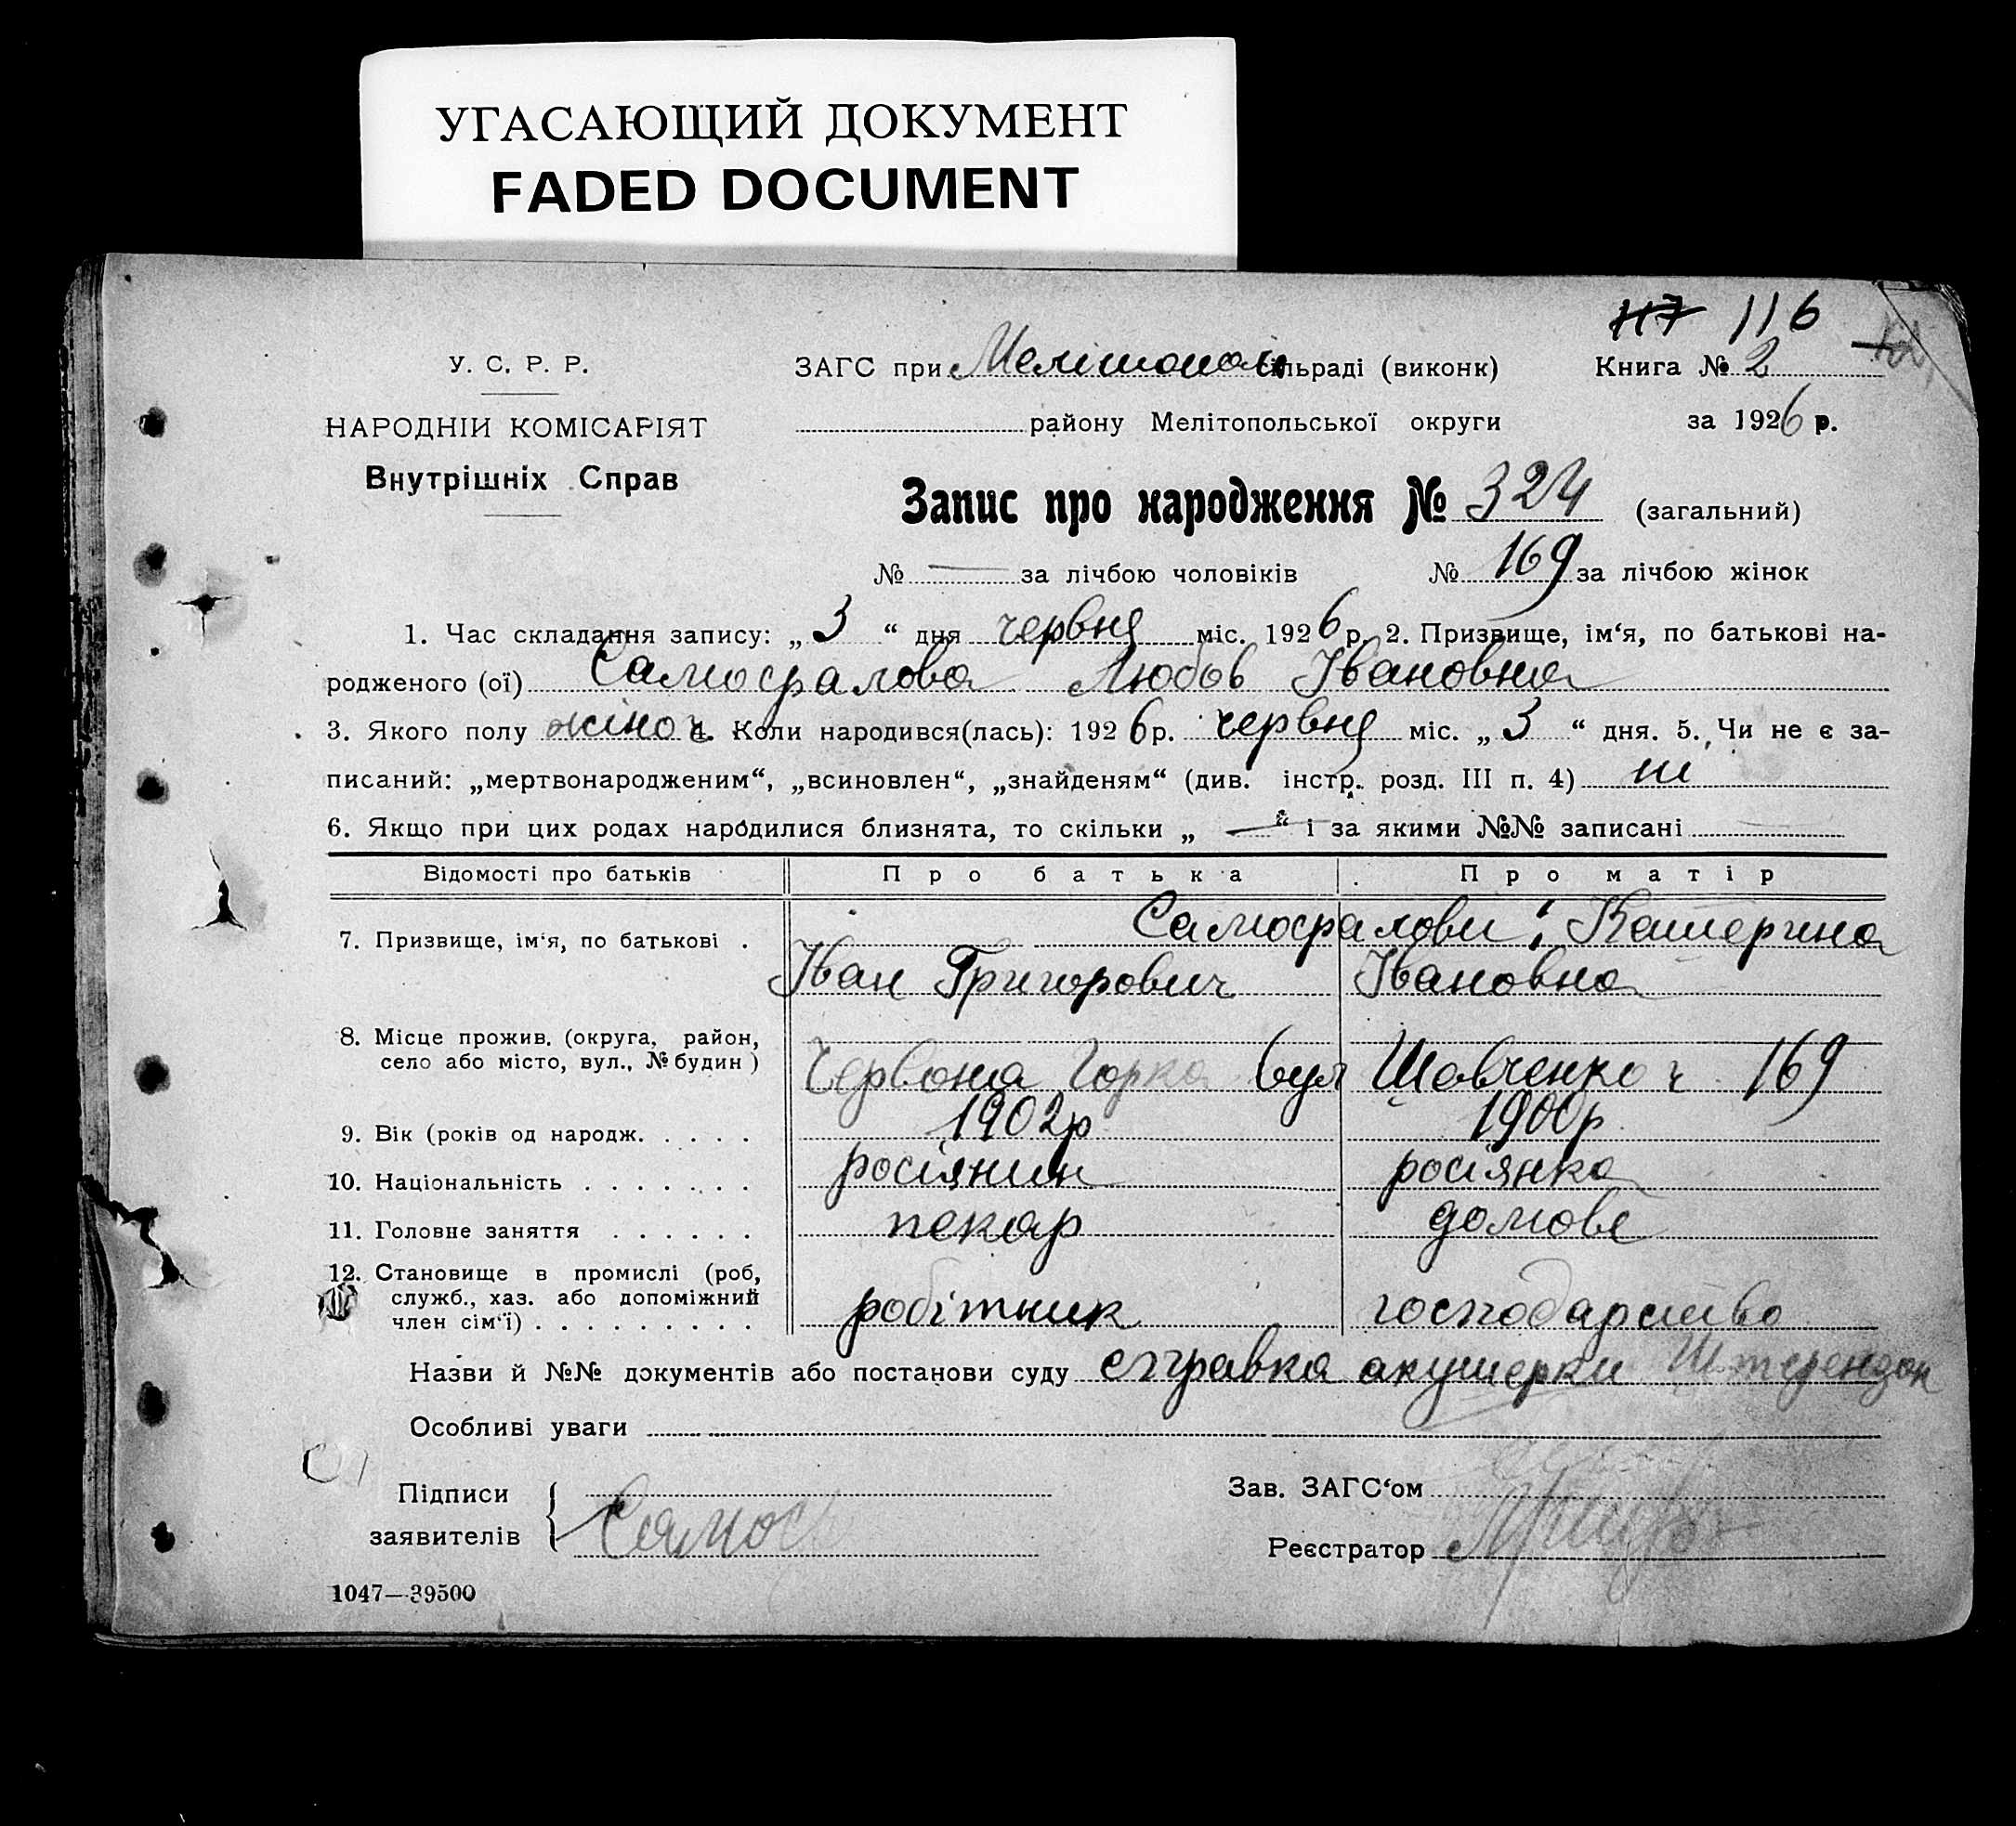 УГАСАЮЩИЙ ДОКУМЕНТ
FADED DOCUMENT
117 116
У. С. Р. Р.
ЗАГС при Мелітополь сільраді (виконк) Книга № 2
НАРОДНІЙ КОМІСАРІЯТ
району Мелітопольської округи за 1926 р.
Внутрішніх Справ
Запис про народження № 324 (загальний)
№ — за лічбою чоловіків № 169 за лічбою жінок
1. Час складання запису: „ 3 “ дня червня міс. 1926 р. 2. Призвище, ім‘я, по батькові на-
родженого (ої) Самосфалова Любов Івановна
3. Якого полу жіноч 4. Коли народився(лась): 1926 р. червня міс. „ 3 “ дня. 5. Чи не є за-
писаний: „мертвонародженим“, „всиновлен“, „знайденям“ (див. інстр. розд. III п. 4) ні
6. Якщо при цих родах народилися близнята, то скільки „ — “ і за якими №№ записані
Відомості про батьків Про батька Про матір
7. Призвище, ім‘я, по батькові . Самосфалови: Катерина
Іван Григорович Івановна
8. Місце прожив. (округа, район,
село або місто, вул., № будин ) Червона Горка вул Шевченко ч 169
9. Вік (років од народж. . . . . 1902р 1900р
10. Національність . . . . . . . росіянин росіянка
11. Головне заняття . . . . . . пекар домове
12. Становище в промислі (роб,
служб., хаз. або допоміжний
член сім‘ї) . . . . . . . . . робітник господарство
Назви й №№ документів або постанови суду справка акушерки
Особливі уваги
Підписи Зав. ЗАГС‘ом
заявителів Самос
Реєстратор
1047—39500